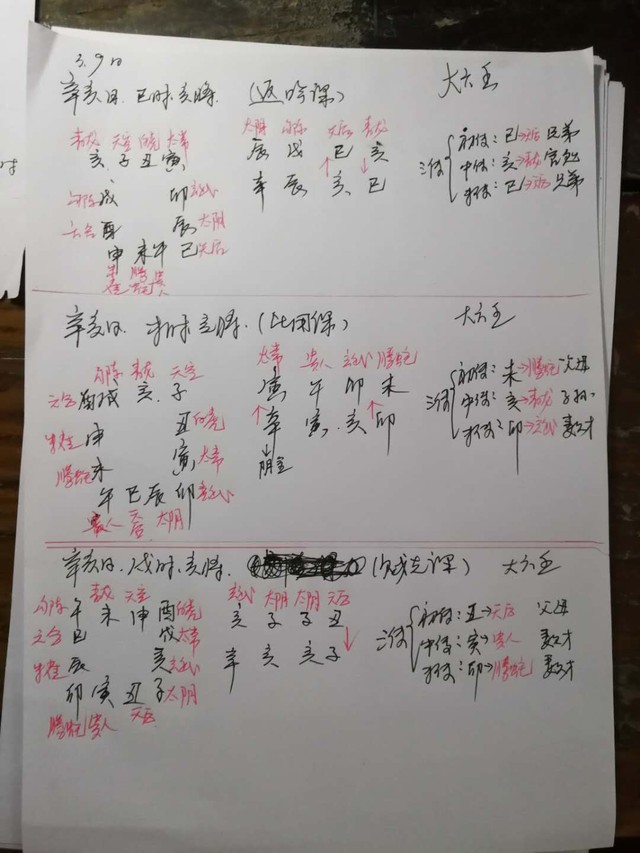 3.9日
辛亥日.巳时.亥将. (返吟课) 大六壬
青龙 天空 白虎 太常 太阴 勾陈 天后 青龙
亥 子 丑 寅 辰 戌 巳 亥
辛 辰 亥 巳
勾陈 戌 卯 玄武
六合 酉 辰 太阴
申 未 午 巳 天后
朱雀 腾蛇 贵人
三传 初传:巳→天后 兄弟
中传:亥→青龙
末传:巳→天后 兄弟
辛亥日. 未时.亥将. (比用课) 大六壬
勾陈 青龙 天空 太常 贵人 玄武 腾蛇
六合 酉 戌 亥 子 寅 午 卯 未
朱雀 申 丑 白虎 辛 寅 亥 卯
腾蛇 未 寅 太常 阴金
午 巳 辰 卯 玄武
贵人 天后 太阴
三传 初传:未→腾蛇 父母
中传:亥→青龙 子孙
末传:卯→玄武 妻才
辛亥日. 戌时.亥将. 大六壬
勾陈 午 青龙 未 天空 申 酉 白虎 玄武 太阴 太阴 天后
六合 巳 戌 太常 亥 子 子 丑
朱雀 辰 亥 玄武 辛 亥 亥 子
卯 寅 丑 子 太阴
腾蛇 贵人 天后
三传 初传:丑→天后 父母
中传:寅→贵人 妻才
末传:卯→腾蛇 妻才